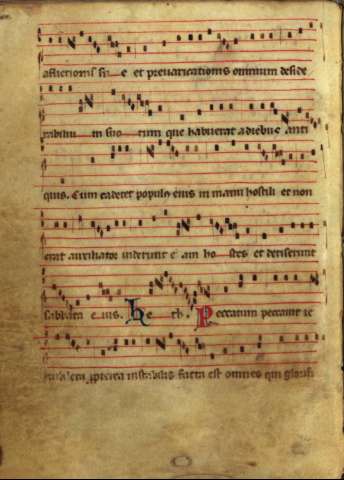 afflictionis su e et prevaricationis omnium deside
rabiliu m suo rum que habuerat a diebus anti
quis. Cum caderet populus eius in manu hostili et non
erat auxiliator viderunt e am ho stes et deriserunt
sabbata e ius. He th. Peccatum peccavit ie
rusalem propterea instabilis facta est omnes qui glorifi